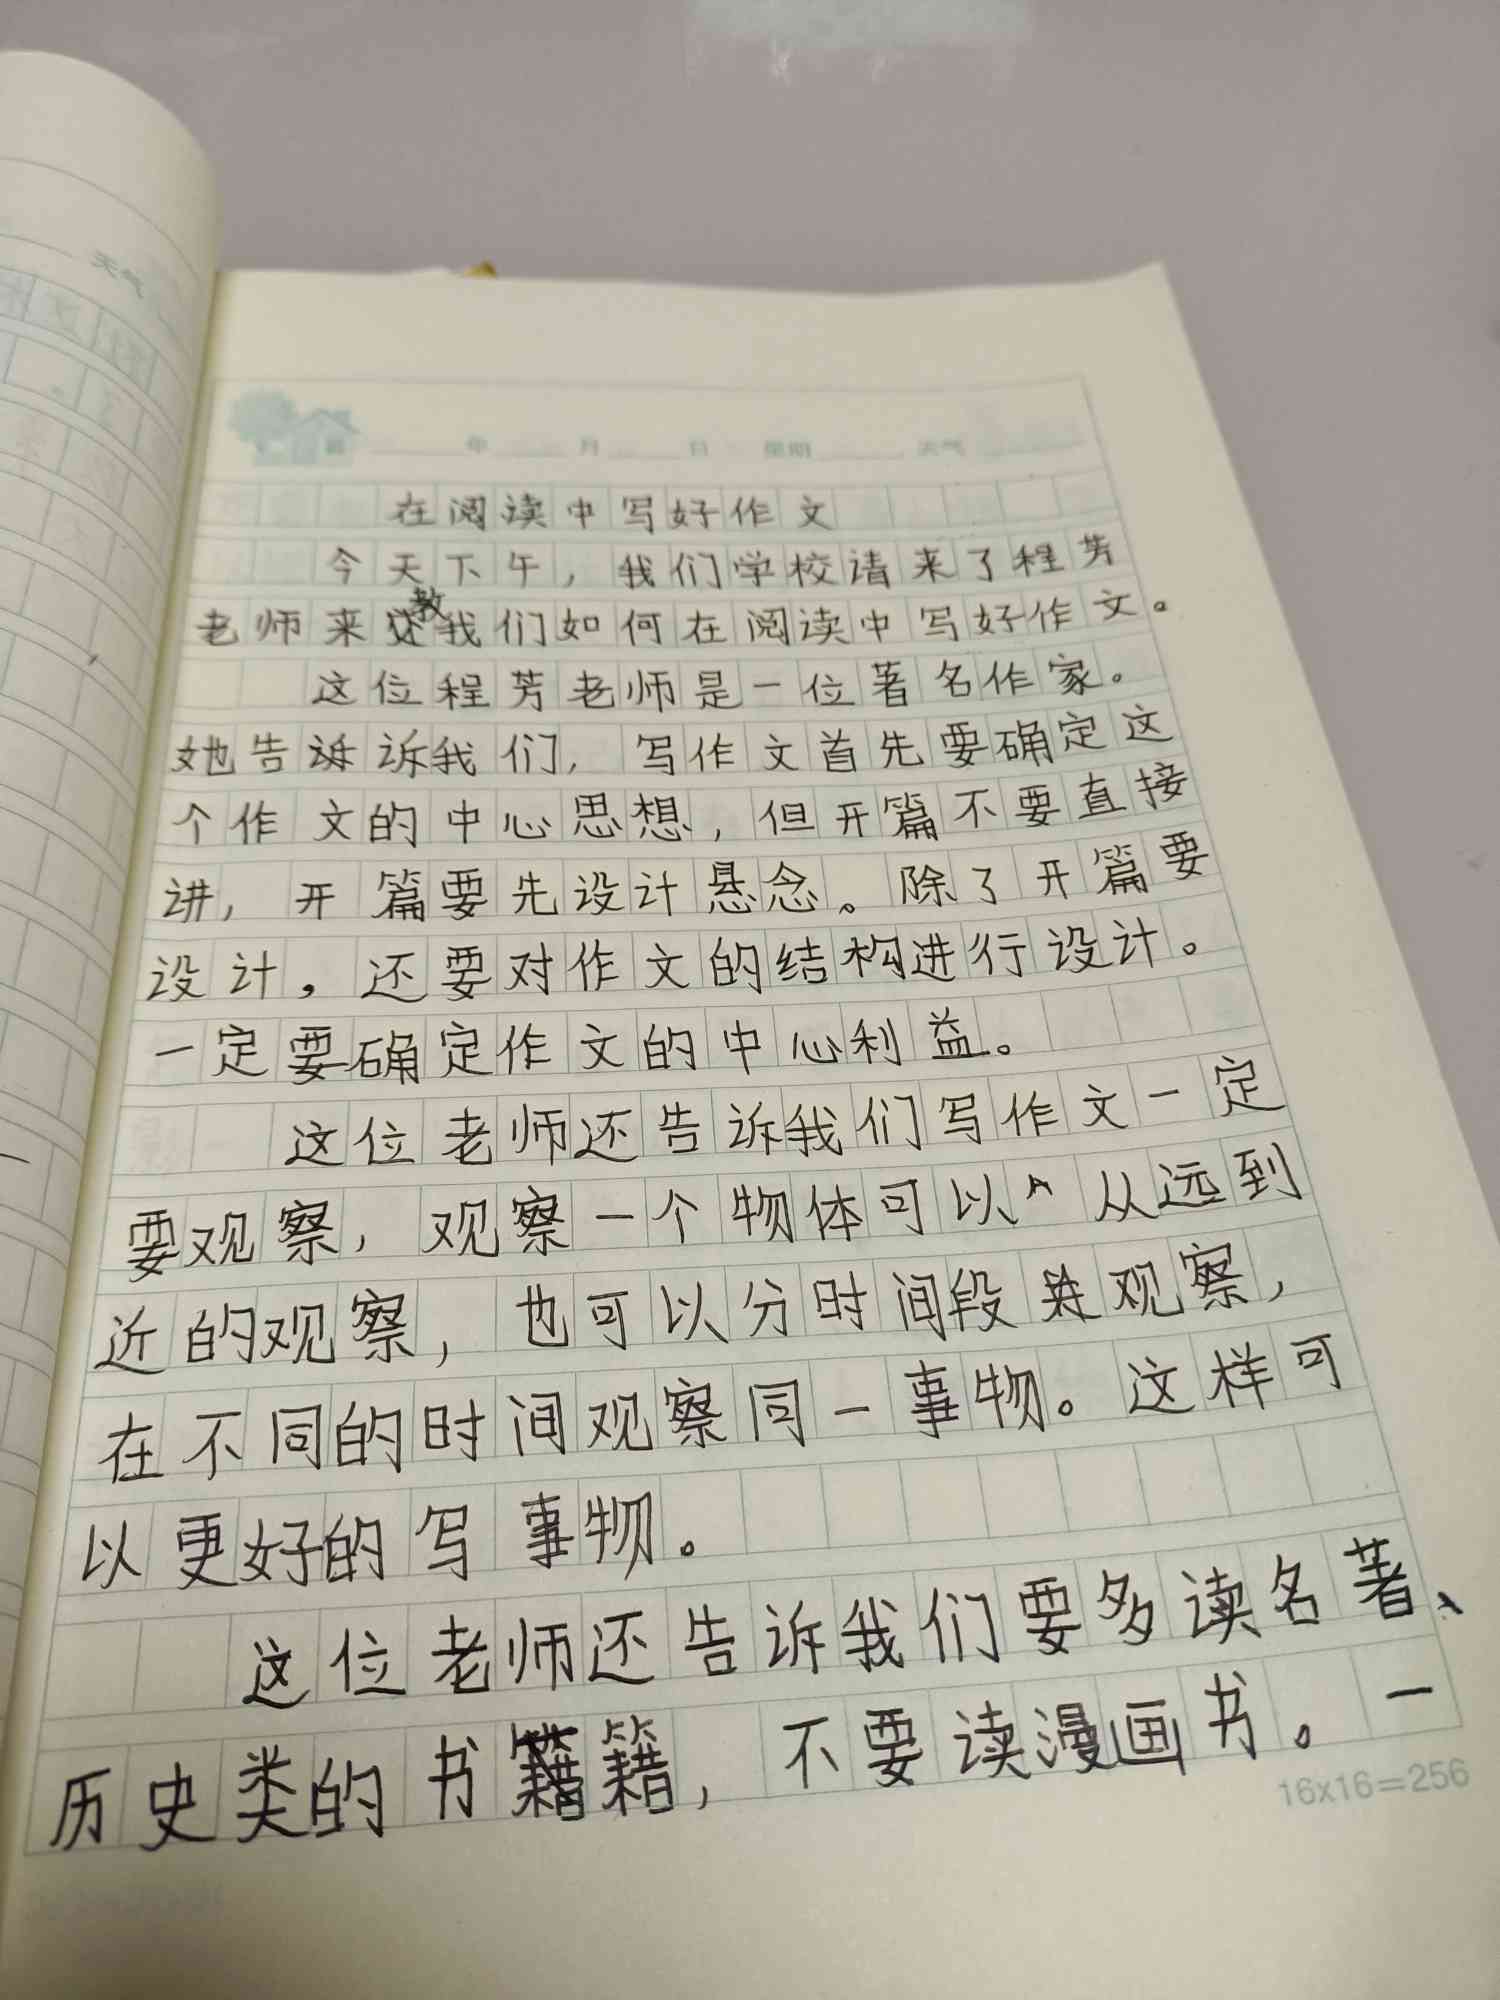 天气
年 月 日 星期 天气
在阅读中写好作文
今天下午，我们学校请来了程芳
老师来教我们如何在阅读中写好作文。
这位程芳老师是一位著名作家。
她告诉诉我们，写作文首先要确定这
个作文的中心思想，但开篇不要直接
讲，开篇要先设计悬念。除了开篇要
设计，还要对作文的结构进行设计。
一定要确定作文的中心利益。
这位老师还告诉我们写作文一定
要观察，观察一个物体可以从远到
近的观察，也可以分时间段观察，
在不同的时间观察同一事物。这样可
以更好的写事物。
这位老师还告诉我们要多读名著、
历史类的书籍，不要读漫画书。一
16x16=256